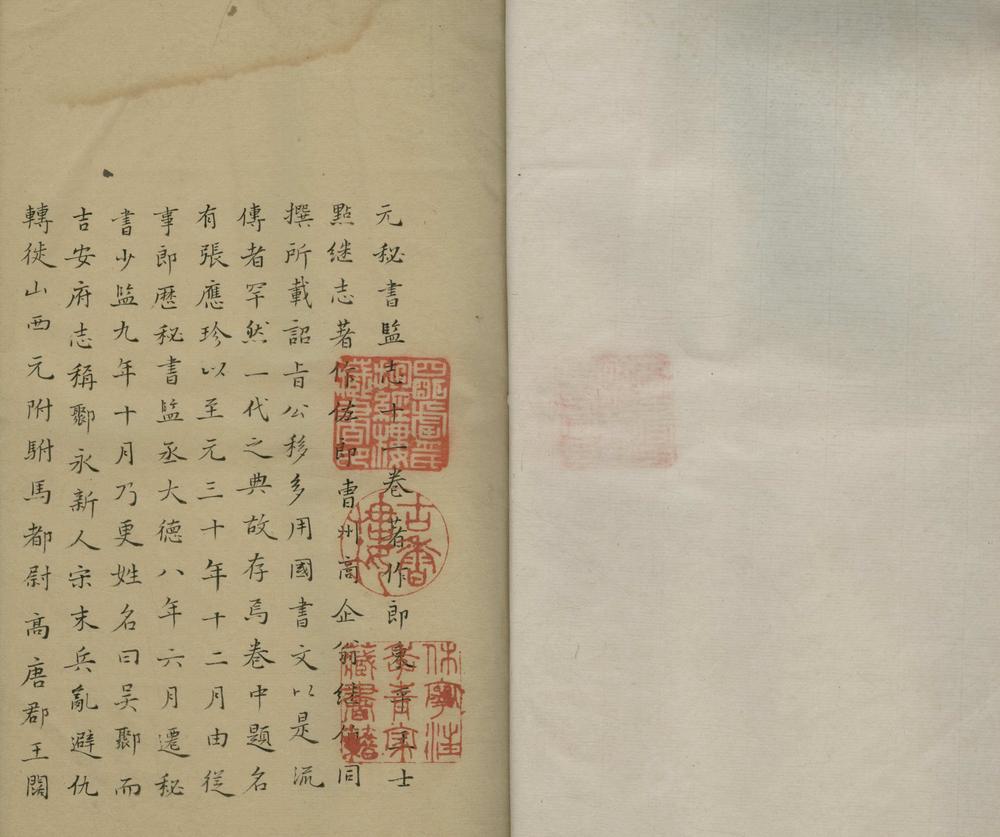 元秘書監志十一卷著作郎東平王士
點继志著作佐郎曹州商企翁继伯同
撰所載詔旨公移多用國書文以是流
傳者罕然一代之典故存焉卷中題名
有張應珍以至元三十年十二月由從
事郎歷秘書監丞大德八年六月遷秘
書少監九年十月乃更姓名曰吳鄹而
吉安府志稱鄹永新人宋末兵亂避仇
轉徙山西元附駙馬都尉高唐郡王闊
四明盧氏
抱經樓
藏書印
古香
樓
休寧汪
季青家
藏書籍